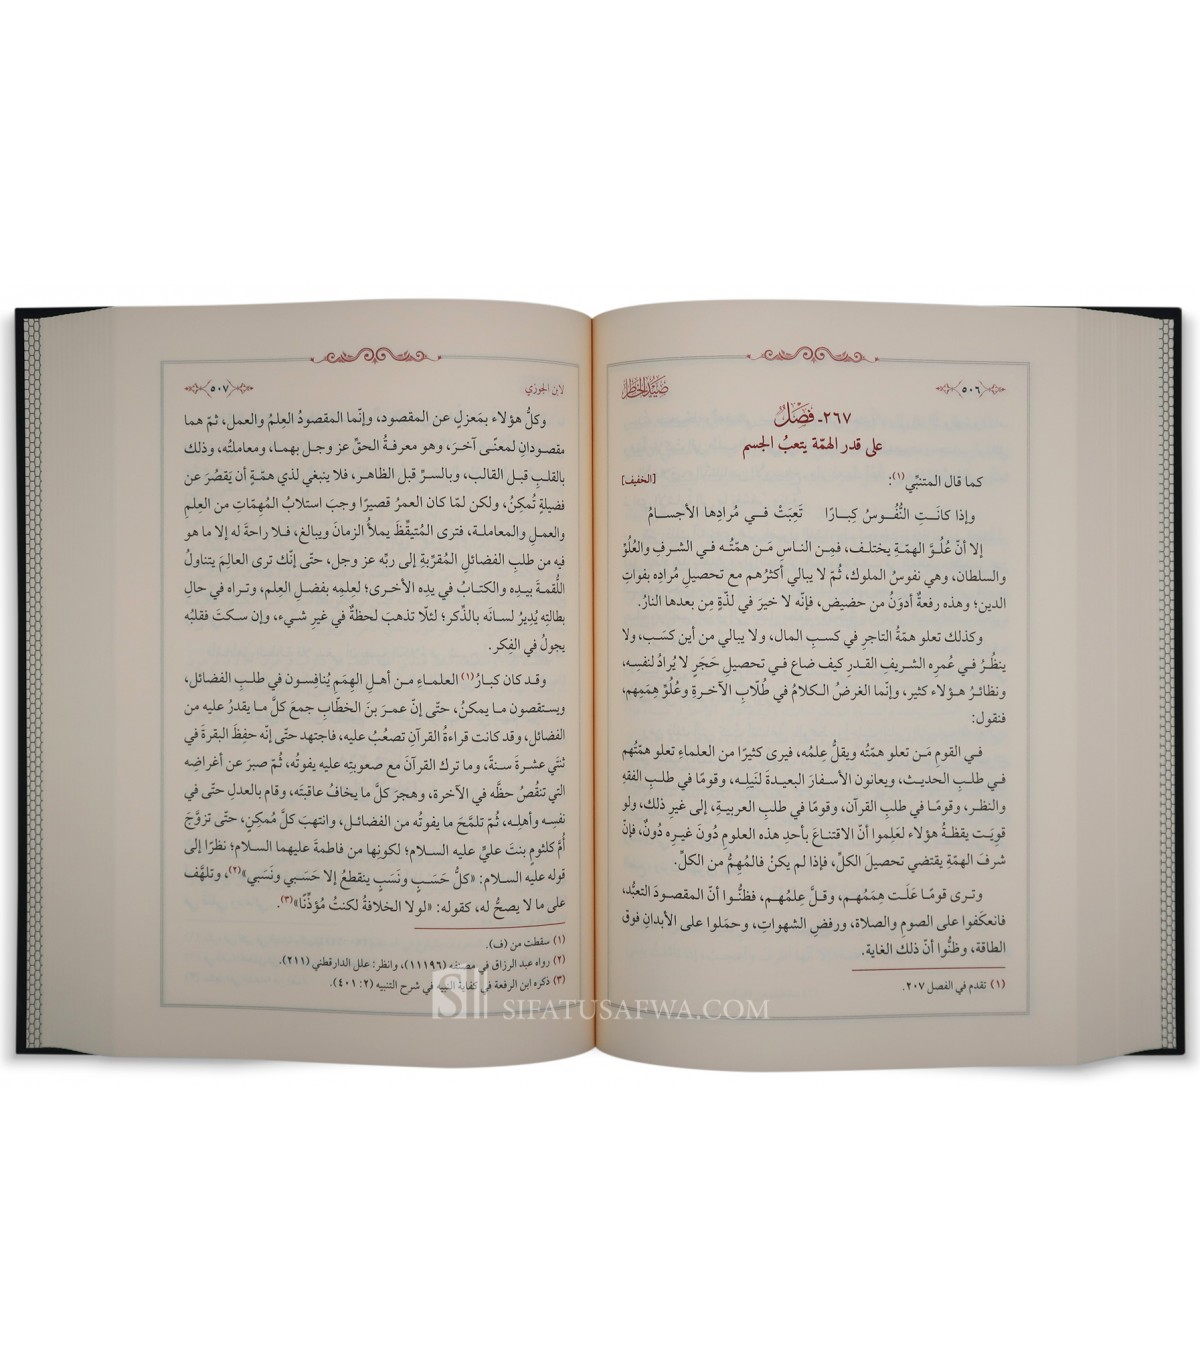 صيد الخاطر
٥٠٦
٢٦٧- فصل
على قدر الهمّة يتعبُ الجسم
كما قال المتنبّي(١): [الخفيف]
وإذا كانَـتِ النُّفُـوسُ كِبـارًا تَعِبَتْ فـي مُرادِها الأجسـامُ
إلا أنّ عُلُـوَّ الهمّـةِ يختلـف، فمِـن الناسِ مَـن همّتُـه فـي الشرفِ والعُلُوِّ
والسلطان، وهي نفوسُ الملوك، ثُمّ لا يبالي أكثرُهم مع تحصيلِ مُرادِه بفواتِ
الدين؛ وهذه رفعةٌ أدوَنُ من حضيض، فإنّه لا خيرَ في لذّةٍ مِن بعدها النارُ.
وكذلك تعلو همّةُ التاجرِ في كسبِ المال، ولا يبالي من أين كسَب، ولا
ينظُـرُ فـي عُمرِه الشريفِ القدرِ كيف ضاع فـي تحصيلِ حَجَرٍ لا يُرادُ لنفسِه،
ونظائرُ هـؤلاء كثير، وإنّما الغرضُ الـكلامُ في طُلّابِ الآخـرةِ وعُلُوِّ هِمَمِهم،
فنقول:
فـي القومِ مَـن تعلو همّتُه ويقلُّ عِلمُه، فيرى كثيرًا من العلماءِ تعلو همّتُهم
فـي طلبِ الحديـث، ويعانون الأسفـارَ البعيـدةَ لنَيلِـه، وقومًا فـي طلبِ الفقهِ
والنظر، وقومًـا في طلبِ القرآن، وقومًـا في طلبِ العربيـة، إلى غيرِ ذلك، ولو
قوِيَـت يقظـةُ هؤلاء لعَلِموا أنّ الاقتناعَ بأحدِ هذه العلومِ دُونَ غيرِه دُونٌ، فإنّ
شرفَ الهمّةِ يقتضي تحصيلَ الكلّ، فإذا لم يكنْ فالمُهِمُّ من الكلّ.
وتـرى قومًـا علَـت هِمَمُهـم، وقـلَّ عِلمُهـم، فظنُّـوا أنّ المقصـودَ التعبُّد،
فانعكَفوا على الصومِ والصلاة، ورفضِ الشهواتِ، وحمَلوا على الأبدانِ فوق
الطاقة، وظنُّوا أنّ ذلك الغاية.
(١) تقدم في الفصل ٢٠٧.
لابن الجوزي
٥٠٧
وكلُّ هؤلاء بمَعزلٍ عن المقصود، وإنّما المقصودُ العِلمُ والعمل، ثمّ هما
مقصودانِ لمعنًـى آخـرَ، وهو معرفـةُ الحقِّ عز وجـل بهمـا، ومعاملتُه، وذلك
بالقلبِ قبـلَ القالب، وبالسـرِّ قبلَ الظاهـر، فلا ينبغي لذي همّـةٍ أن يَقصُرَ عن
فضيلةٍ تُمكِنُ، ولكن لمّا كان العمرُ قصيرًا وجبَ استلابُ المُهِمّاتِ من العِلمِ
والعمـلِ والمعاملـة، فترى المُتيقِّظَ يملأُ الزمانَ ويبالغ، فـلا راحةَ له إلا ما هو
فيه من طلبِ الفضائلِ المُقرِّبةِ إلى ربِّه عز وجل، حتّى إنّك ترى العالِمَ يتناولُ
اللُّقمـةَ بيـدِه والكتـابُ في يدِه الأخرى؛ لعِلمِـه بفضـلِ العِلم، وتـراه في حالِ
بطالتِه يُديـرُ لسـانَه بالذِّكر؛ لئلّا تذهبَ لحظةٌ في غيرِ شـيء، وإن سكتَ فقلبُه
يجولُ في الفِكر.
وقـد كان كبـارُ(١) العلمـاءِ مـن أهـلِ الهِمَمِ يُنافِسـون في طلبِ الفضائل،
ويستقصون ما يمكنُ، حتّـى إنّ عمـرَ بنَ الخطّابِ جمعَ كلَّ ما يقدرُ عليه من
الفضائل، وقد كانت قراءةُ القرآنِ تصعُبُ عليه، فاجتهد حتّى إنّه حفِظَ البقرةَ في
ثنتَي عشـرةَ سنـةً، وما تركَ القرآنَ مع صعوبتِه عليه يفوتُه، ثُمّ صبرَ عن أغراضِه
التي تنقُصُ حظَّه في الآخرة، وهجرَ كلَّ ما يخافُ عاقبتَه، وقام بالعدلِ حتّى في
نفسِه وأهلِـه، ثُمّ تلمَّحَ ما يفوتُه من الفضائـل، وانتهبَ كلَّ مُمكِنٍ، حتّى تزوَّجَ
أُمَّ كلثومٍ بنتَ عليٍّ عليه السلام؛ لكونِها من فاطمةَ عليهما السلام؛ نظرًا إلى
قولِه عليه السلام: «كلُّ حَسَـبٍ ونَسَبٍ ينقطعُ إلا حَسَـبي ونَسَبي»(٢)، وتلهَّف
على ما لا يصحُّ له، كقوله: «لولا الخلافةُ لكنتُ مُؤذِّنًا»(٣).
(١) سقطت من (ف).
(٢) رواه عبد الرزاق في مصنفه (١١١٩٦)، وانظر: علل الدارقطني (٢١١).
(٣) ذكره ابن الرفعة في كفاية النبيه في شرح التنبيه (٢: ٤٠١).
SIFATUSAFWA.COM